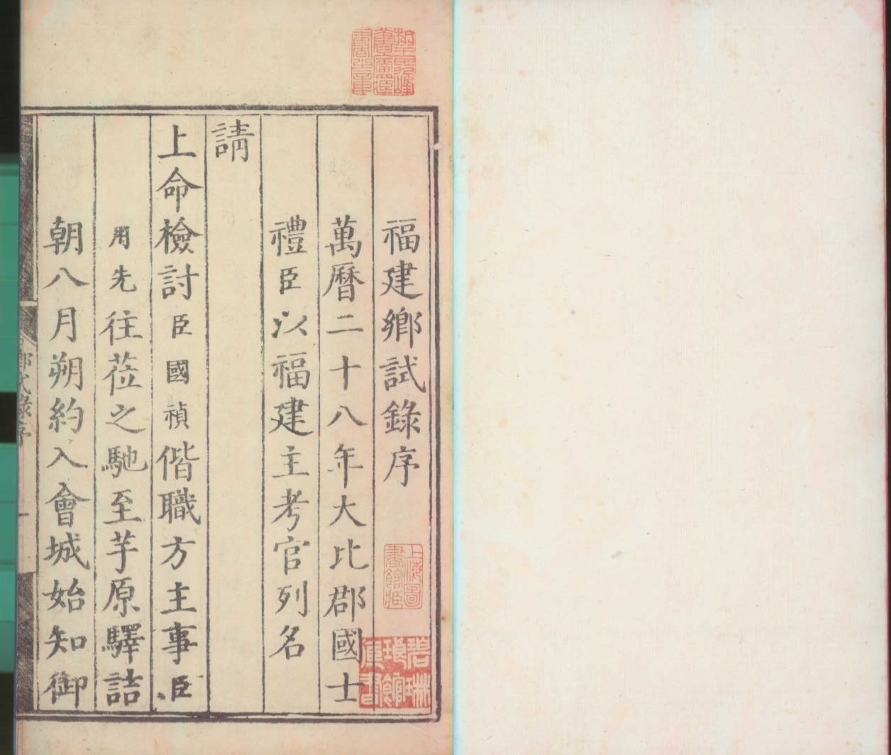 福建鄉試錄序
萬曆二十八年大比郡國士
禮臣以福建主考官列名
請
上命檢討臣國禎偕職方主事臣
用先往莅之馳至芋原驛詰
朝八月朔約入會城始知御
上海圖書館藏